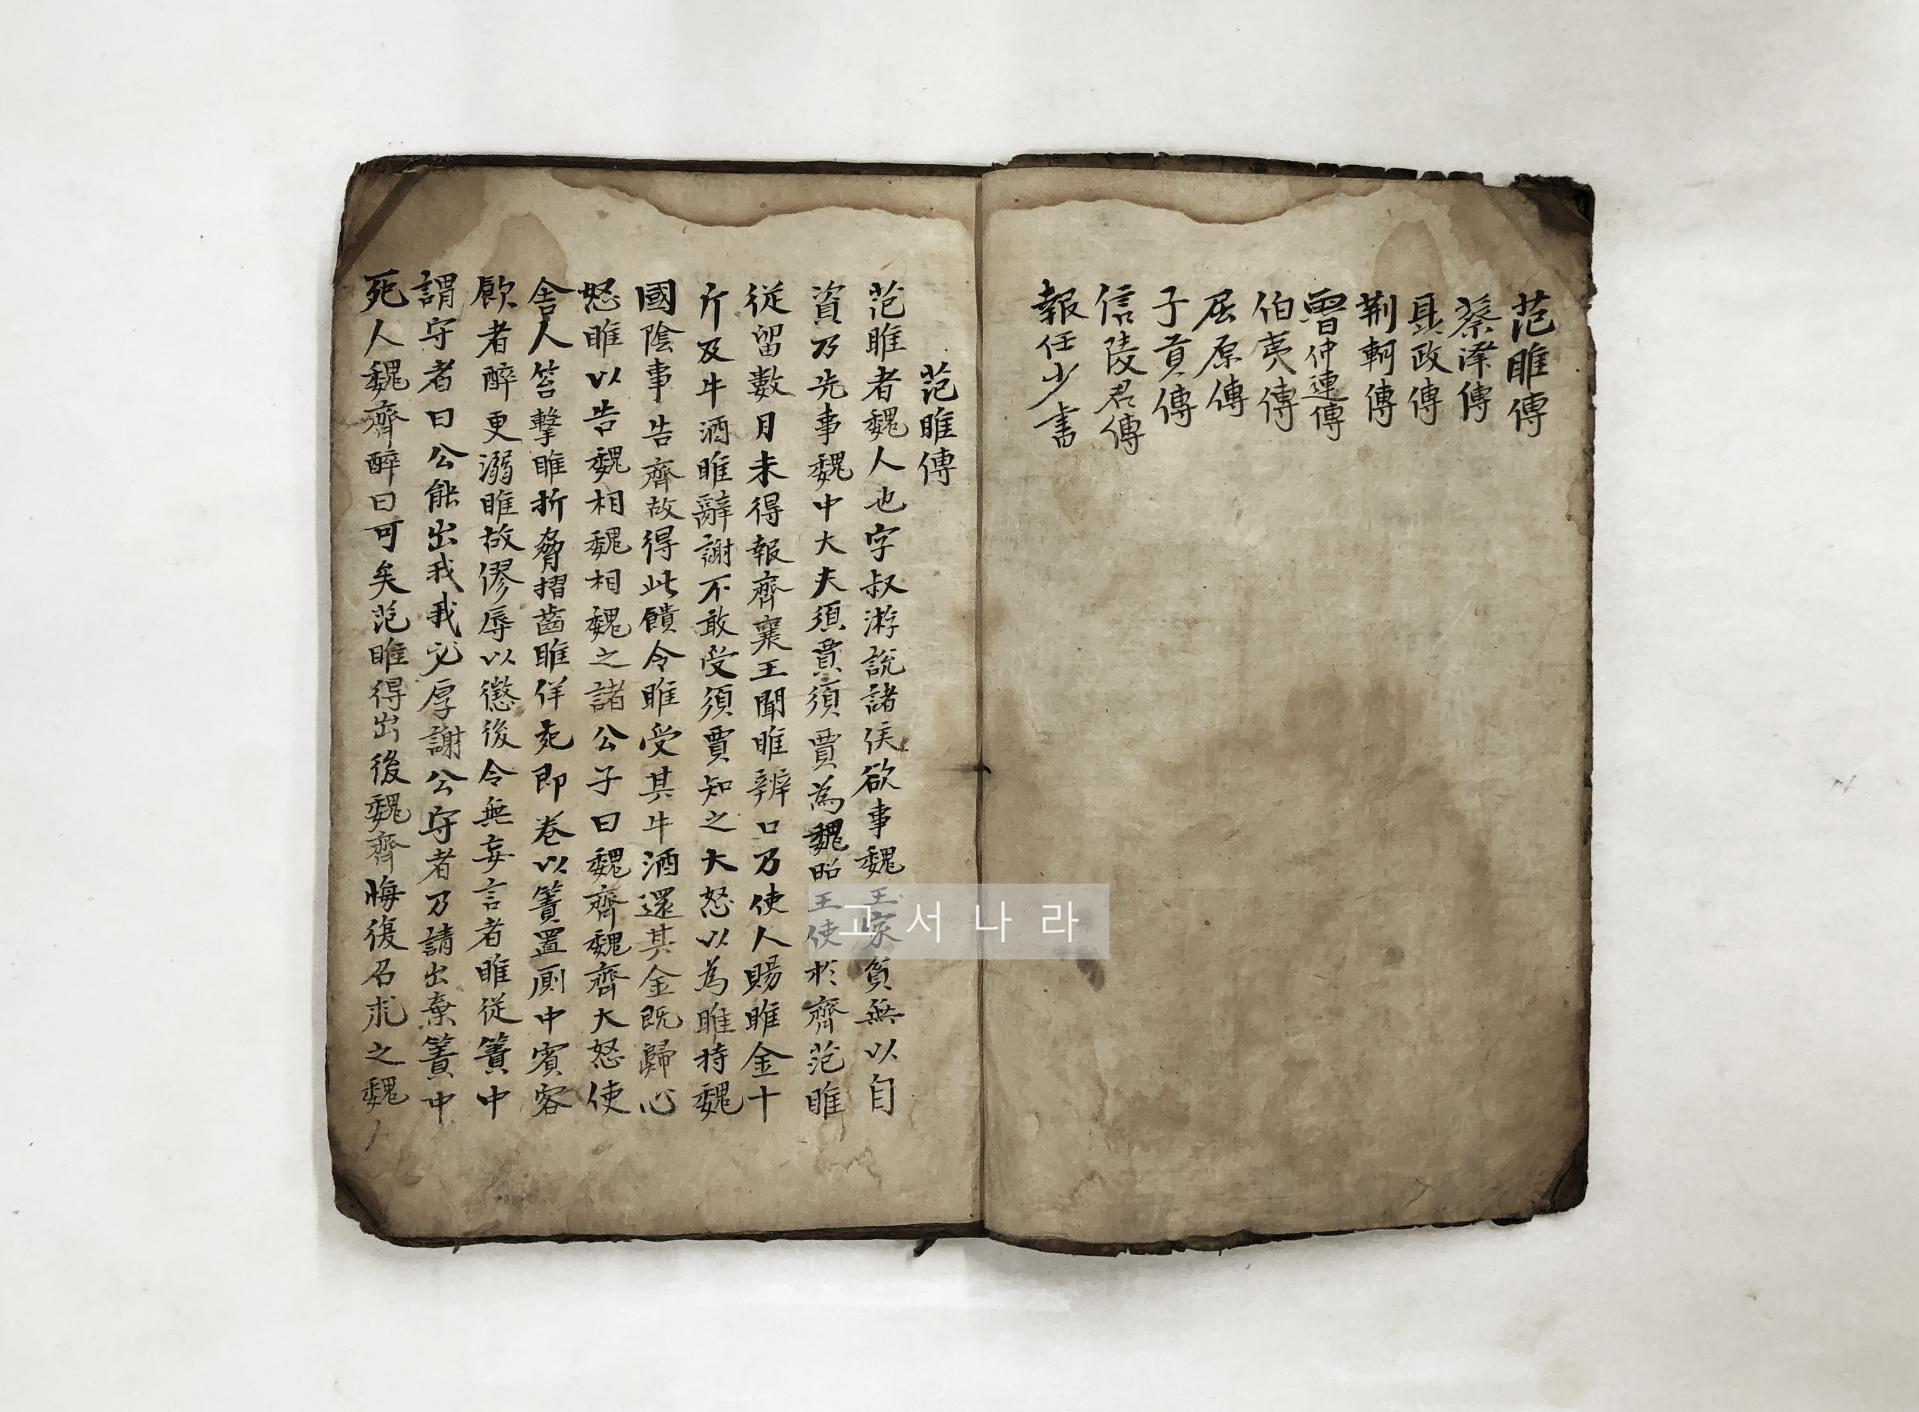 范睢傳
蔡澤傳
聶政傳
荊軻傳
魯仲連傳
伯夷傳
屈原傳
子貢傳
信陵君傳
報任少書
范睢傳
范睢者魏人也字叔游說諸侯欲事魏王家貧無以自
資乃先事魏中大夫須賈須賈為魏昭王使於齊范睢
從留數月未得報齊襄王聞睢辨口乃使人賜睢金十
斤及牛酒睢辭謝不敢受須賈知之大怒以為睢持魏
國陰事告齊故得此饋令睢受其牛酒還其金既歸心
怒睢以告魏相魏相魏之諸公子曰魏齊魏齊大怒使
舍人笞擊睢折脅摺齒睢佯死即卷以簀置厠中賓客
飲者醉更溺睢故僇辱以懲後令無妄言者睢從簀中
謂守者曰公能出我我必厚謝公守者乃請出棄簀中
死人魏齊醉曰可矣范睢得出後魏齊悔復召求之魏人
고서나라